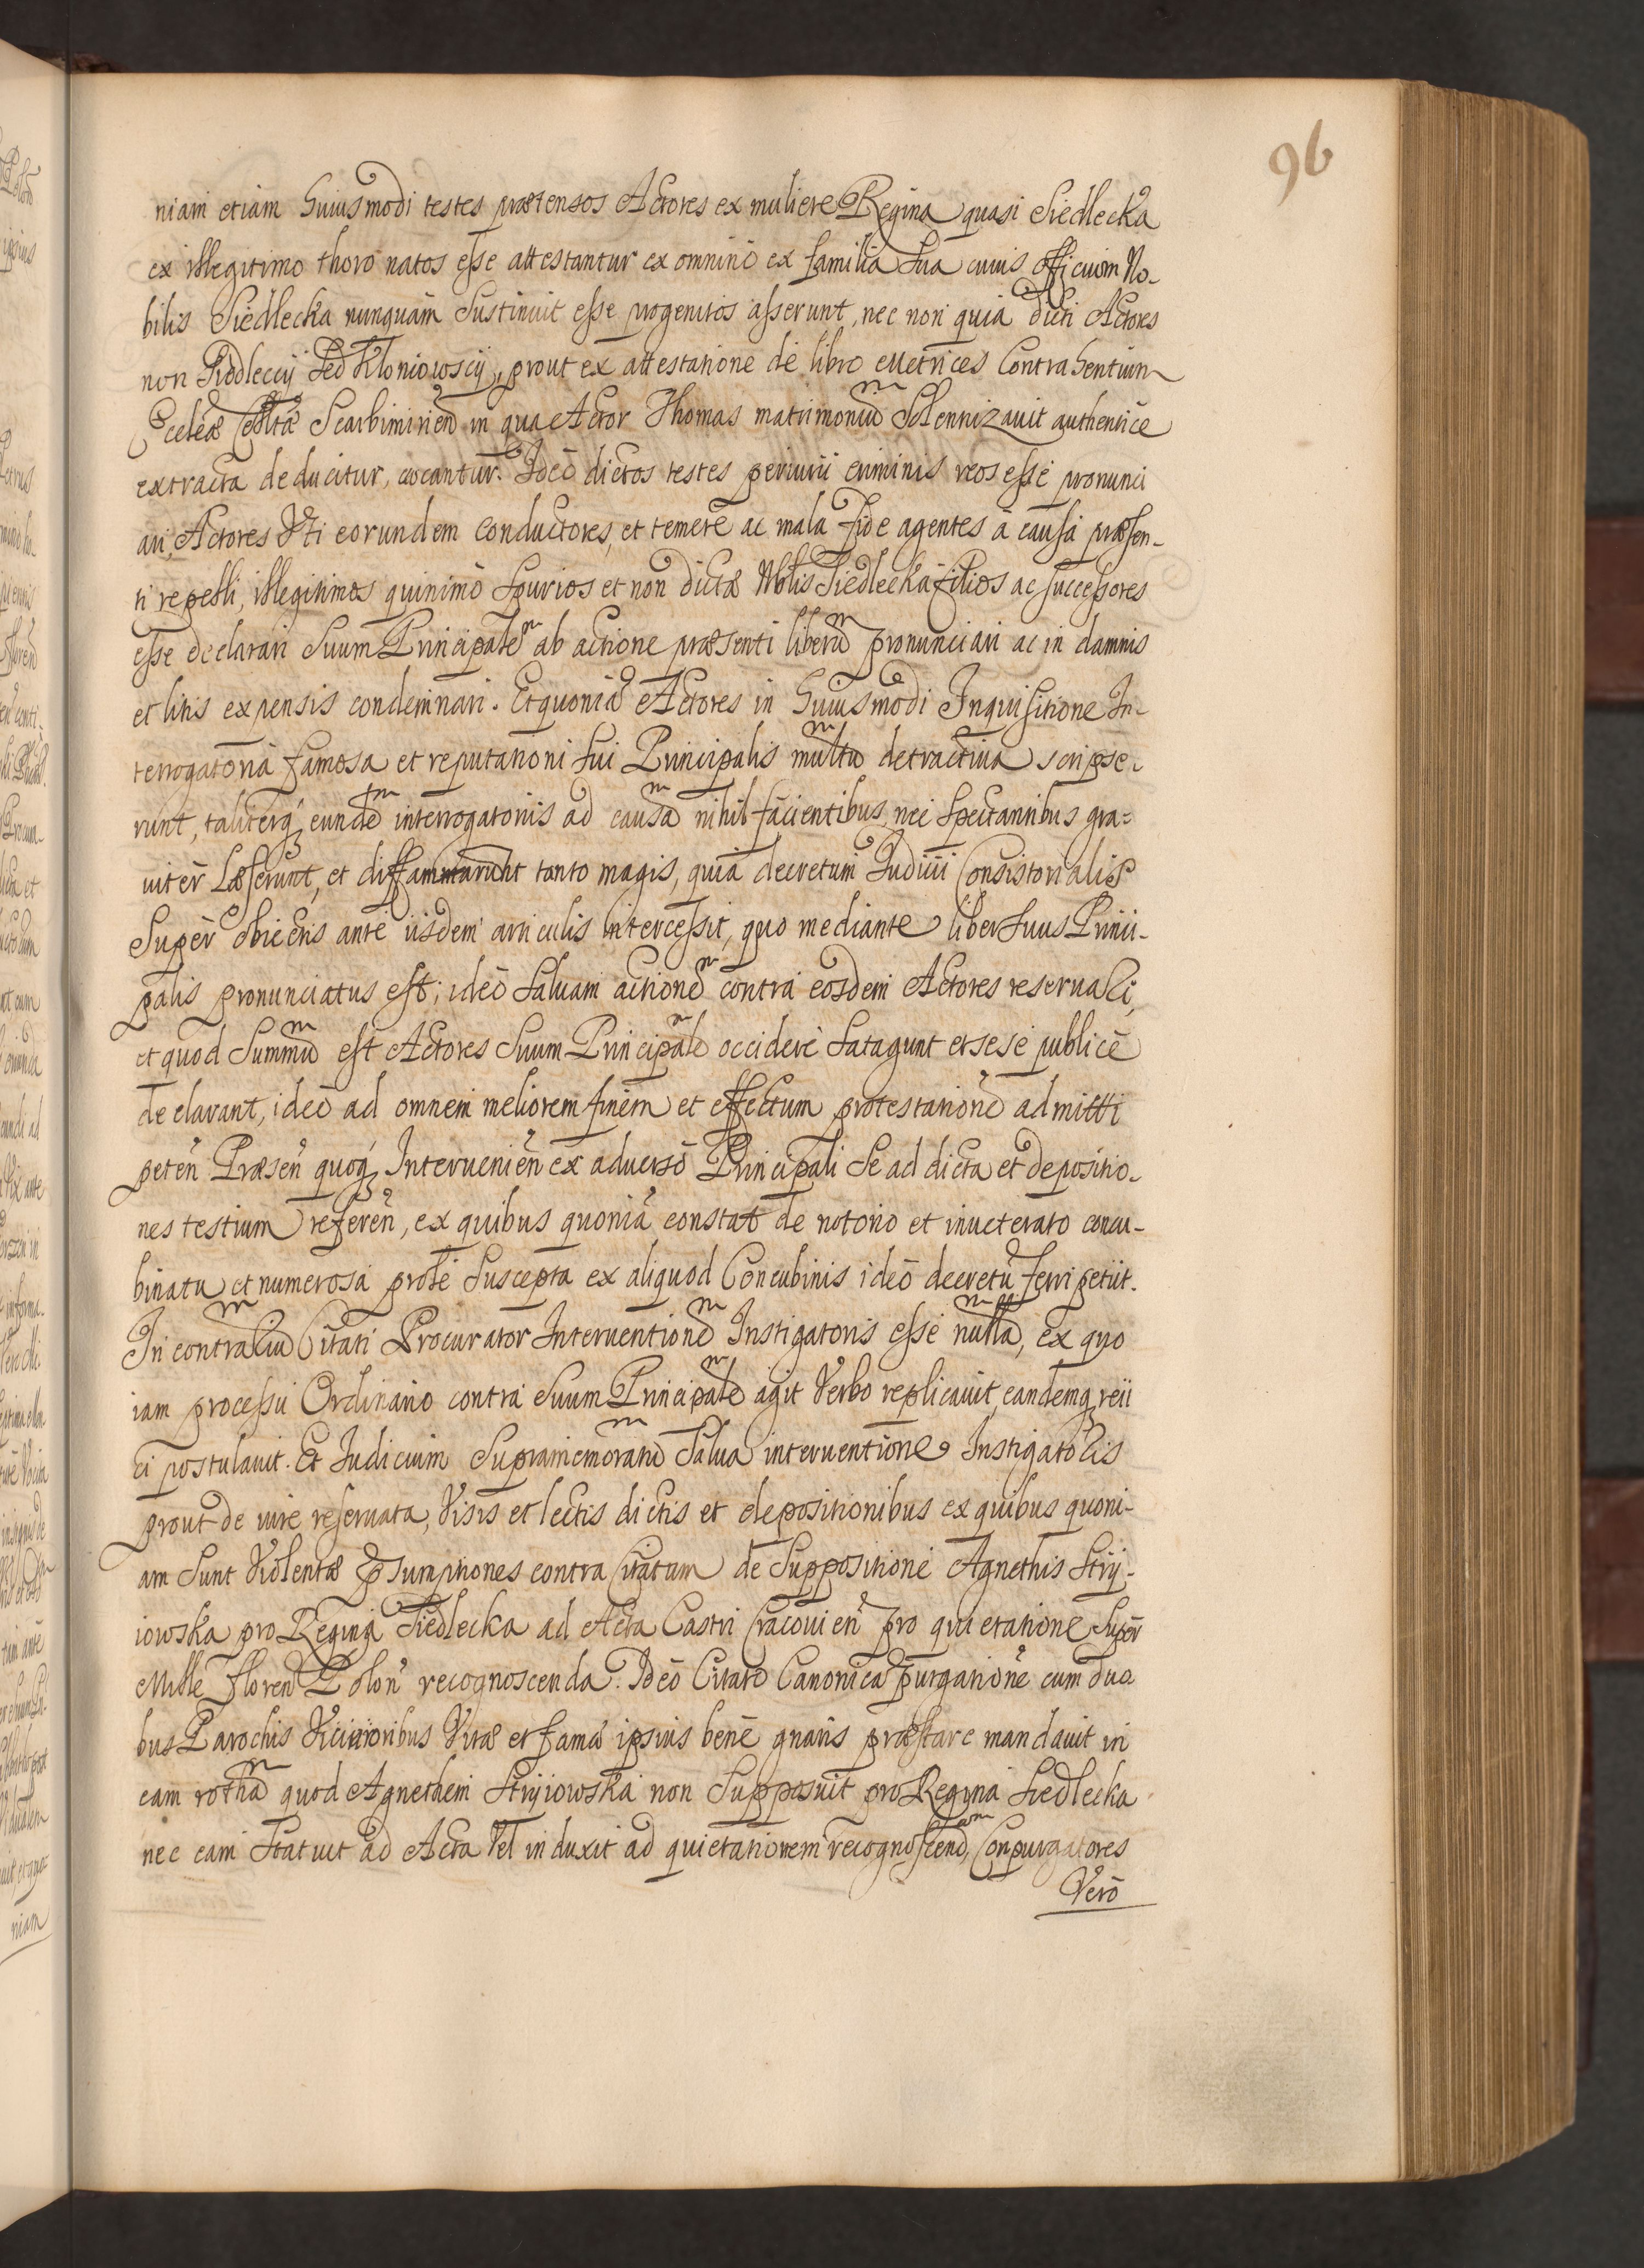 96
niam etiam huiusmodi testes prætensos Actores ex muliere Regina quasi Siedlecka
ex illegitimo thoro natos esse attestantur ex omnino ex familia sua cuius officium No-
bilis Siedlecka nunquam sustinuit esse progenitos asserunt, nec non quia dicti Actores
non Siedleccÿ sed Kloniowscÿ, prout ex attestatione de libro Metrices Contrahentium
Eccleæ Scarbimirien in qua Actor Thomas matrimoniũ solennizavit authentice
extracta deducitur, vocantur. Ideo dictos testes periurii criminis reos esse pronunci
ari, Actores Vti eorundem conductores, et temere ac mala fide agentes a causa præsen-
ti repelli, illegitimos quinimo spurios et non dictæ Nblis Siedlecka filios ac successores
esse declarari suum Principale͂ ab actione præsenti liberũ pronunciari ac in damnis
et litis expensis condemnari. Et quoniã Actores in huiusmodi Inquisitione In-
terrogatoria famosa et reputationi sui Principalis multũ detractiua scripse-
runt, taliterq; eunde͂ interrogatoriis ad causã nihil facientibus, nec spectantibus gra-
uiter læserunt, et diffammarunt tanto magis, quia decretum Iudicii Consistorialis
super obiectis ante iisdem articulis intercessit, quo mediante liber suus Princi-
palis pronunciatus est; ideo saluam actione͂ contra eosdem Actores reseruari,
et quod summũ est Actores suum Principale͂ occidere satagunt et sese publice
declarant, ideo ad omnem meliorem finem et effectum protestatione͂ admitti
peten͂ Præsen͂ quoq; Interuenien͂ ex aduerso Principali se ad dicta et depositio-
nes testium referen͂, ex quibus quoniã constat de notorio et inueterato concu-
binatu et numerosa prole suscepta ex aliquod Concubinis ideo decretũ ferri petiit.
In contrariũ Citati Procurator Interuentione͂ Instigatoris esse nullã, ex quo
iam processu Ordinario contra suum Principale͂ agit Verbo replicauit, eandemq; reii
ci postulauit. Et Iudicium supramemoratũ salua interuentione Instigatoris
prout de iure reseruata, Visis et lectis dictis et depositionibus ex quibus quoni-
am sunt Violentæ p̃sumptiones contra Citatum de suppositione Agnethis Strÿ-
iowska pro Regina Siedlecka ad Acta Castri Cracouien͂ pro quietatione super
Mille floren͂ Polon͂ recognoscenda. Ideo Citato Canonicã purgatione͂ cum dua
bus Parochis Vicinioribus Vitæ et famæ ipsius bene gnaris præstare mandauit in
eam rothã quod Agnethem Strÿiowska non supposuit pro Regina Siedlecka
nec eam statuit ad Acta Vel induxit ad quietationem recognoscendam, Conpurgatores
Vero